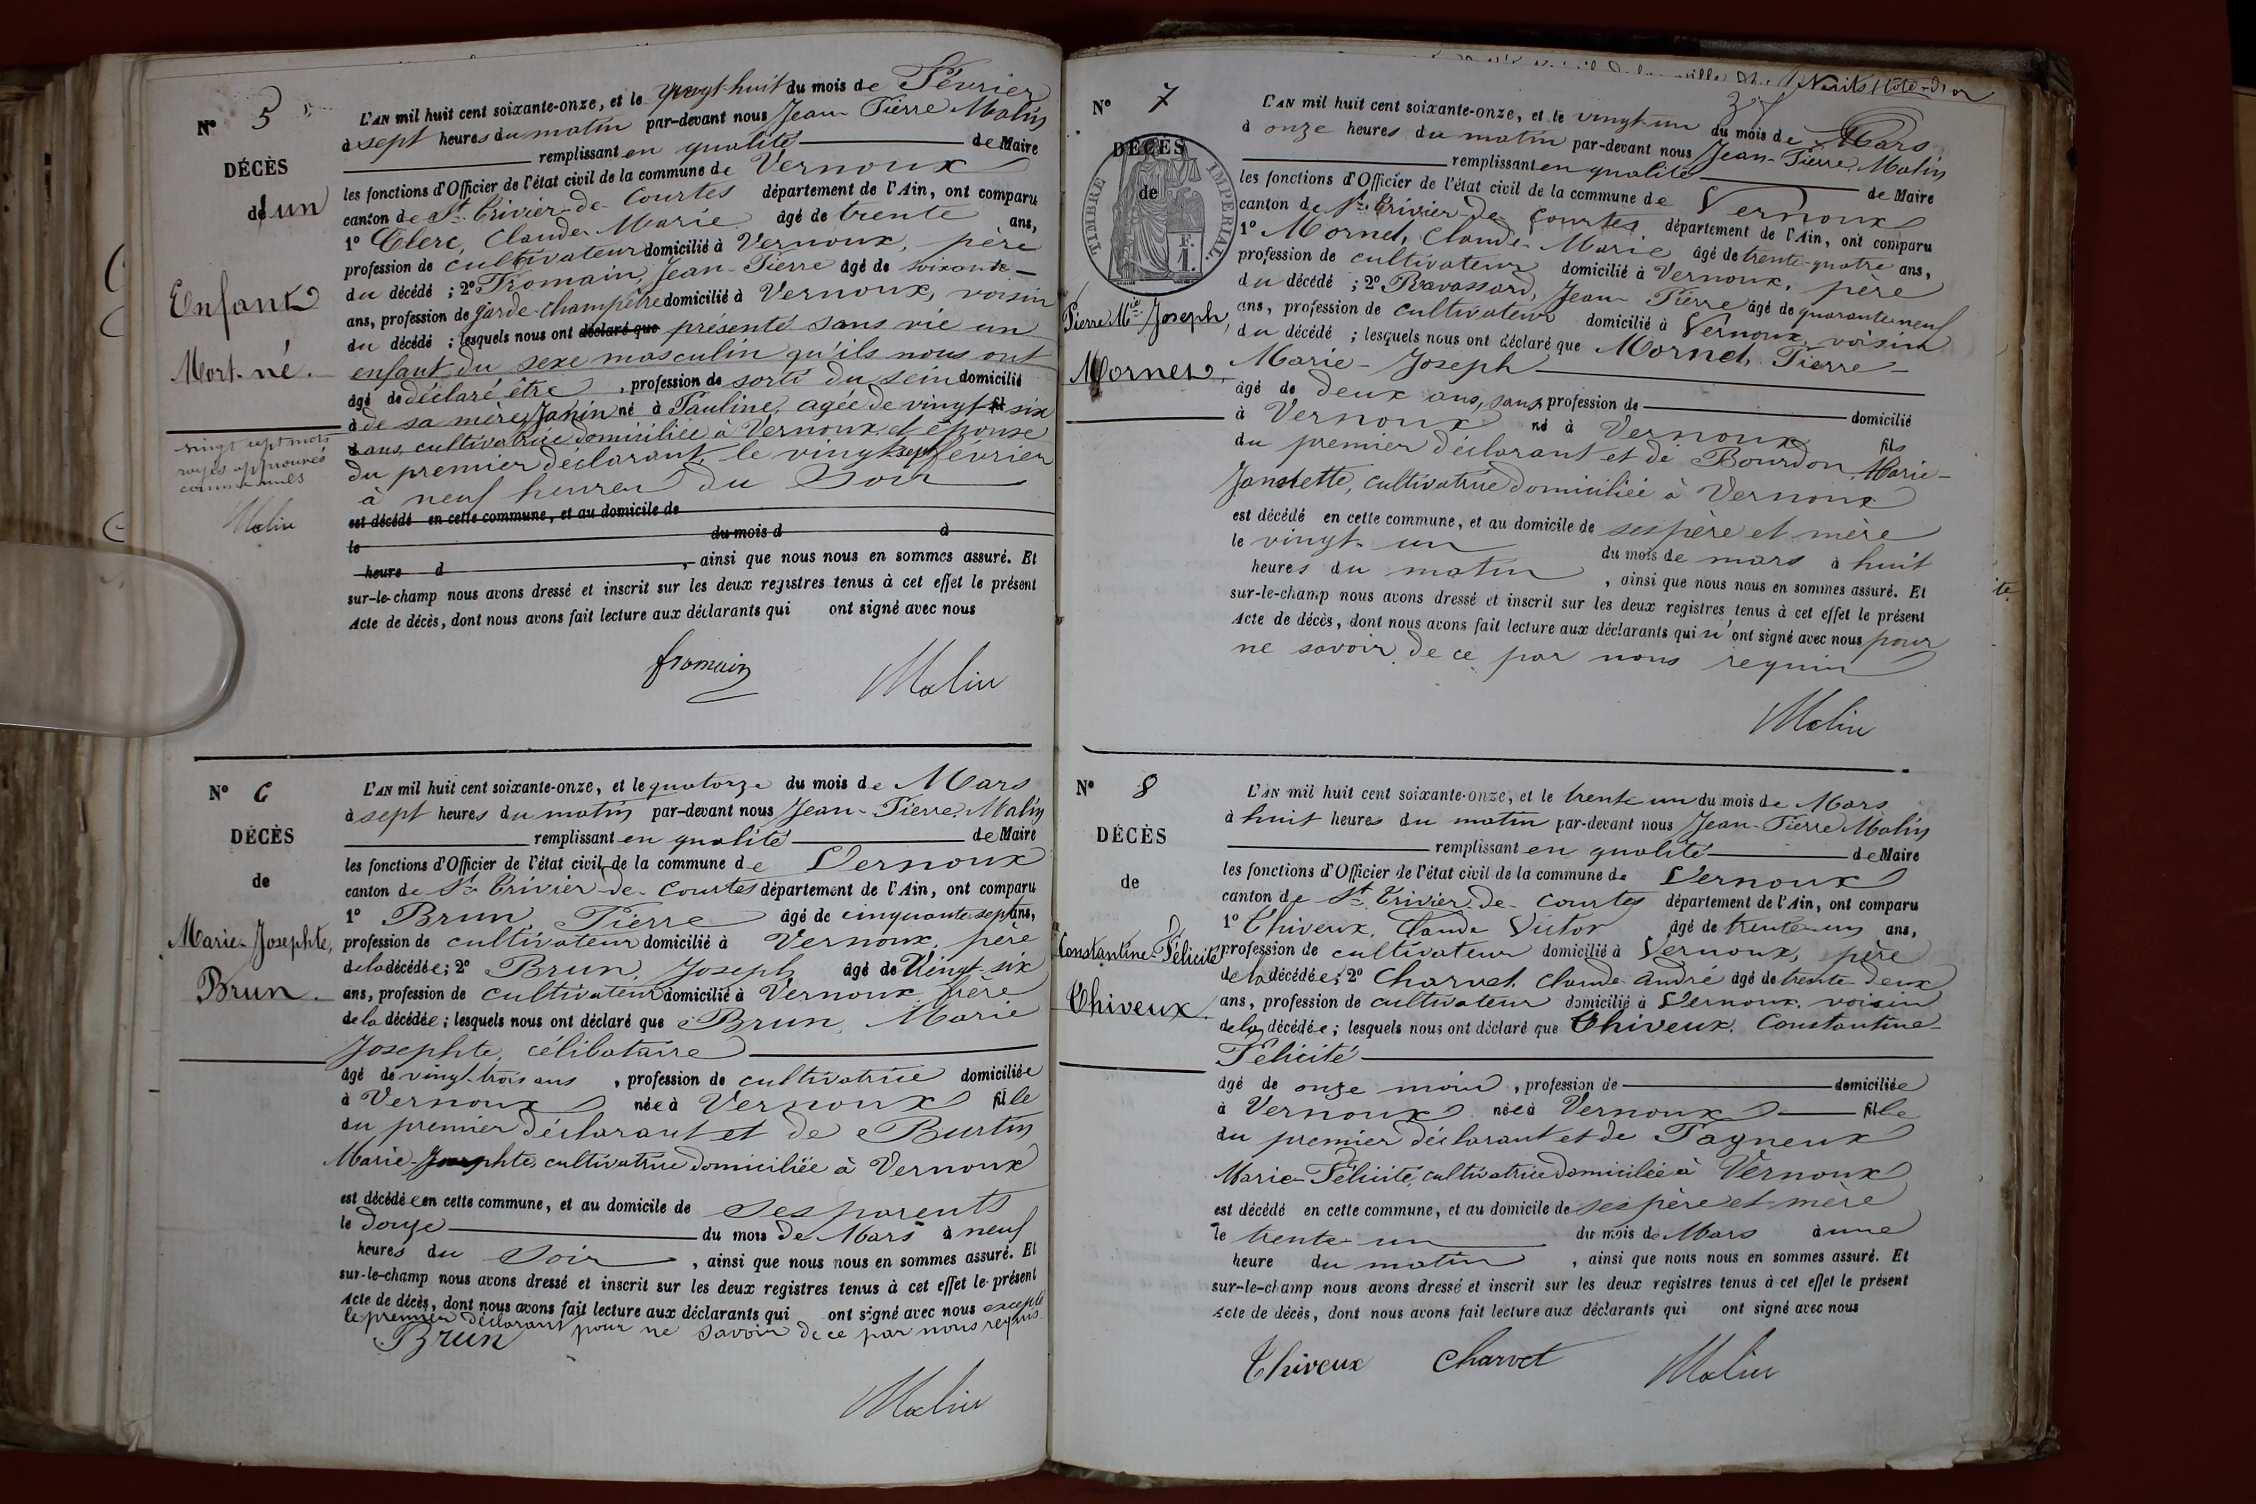 N° 5
DÉCÈS
d'un
Enfant
Mort-né.
vingt sept mots
rayés approuvés
comme nuls
Malin
L'AN mil huit cent soixante-onze, et le vingt-huit du mois de Février
à sept heures du matin par-devant nous Jean-Pierre Malin
remplissant en qualité de Maire
les fonctions d'Officier de l'état civil de la commune de Vernoux
canton de St Trivier-de-Courtes département de l'Ain, ont comparu
1° Clerc, Claude Marie âgé de trente ans,
profession de cultivateur domicilié à Vernoux, père
du décédé ; 2° Fromain, Jean-Pierre âgé de soixante
ans, profession de garde-champêtre domicilié à Vernoux, voisin
du décédé ; lesquels nous ont déclaré que présenté sans vie un
enfant du sexe masculin qu'ils nous ont
âgé de déclaré être , profession de sorti du sein domicilié
à de sa mère, Janin né à Pauline, agée de vingt six
ans, cultivatrice domiciliée à Vernoux et épouse
du premier déclarant, le vingt sept février
à neuf heures du soir
est décédé en cette commune, et au domicile de
le du mois d à
heure d , ainsi que nous nous en sommes assuré. Et
sur-le-champ nous avons dressé et inscrit sur les deux registres tenus à cet effet le présent
Acte de décès, dont nous avons fait lecture aux déclarants qui ont signé avec nous
fromain Malin
N° 6
DÉCÈS
de
Marie-Josephte,
Brun.
L'AN mil huit cent soixante-onze, et le quatorze du mois de Mars
à sept heures du matin par-devant nous Jean-Pierre Malin
remplissant en qualité de Maire
les fonctions d'Officier de l'état civil de la commune de Vernoux
canton de St Trivier-de-Courtes département de l'Ain, ont comparu
1° Brun, Pierre âgé de cinquante sept ans,
profession de cultivateur domicilié à Vernoux, père
de la décédée ; 2° Brun, Joseph âgé de Vingt-six
ans, profession de cultivateur domicilié à Vernoux frère
de la décédée ; lesquels nous ont déclaré que Brun, Marie
Josephte, célibataire
âgé de vingt-trois ans , profession de cultivatrice domiciliée
à Vernoux née à Vernoux fille
du premier déclarant et de Burtin
Marie-Josephte, cultivatrice domiciliée à Vernoux
est décédée en cette commune, et au domicile de ses parents
le douze du mois de Mars à neuf
heures du soir , ainsi que nous nous en sommes assuré. Et
sur-le-champ nous avons dressé et inscrit sur les deux registres tenus à cet effet le présent
Acte de décès, dont nous avons fait lecture aux déclarants qui ont signé avec nous excepté
le premier déclarant pour ne savoir de ce par nous requis
Brun
Malin
Nuits (Côte-d'or
N° 7
DÉCÈS
de
TIMBRE IMPERIAL
F.
1.
Pierre Mie Joseph,
Mornet.
L'AN mil huit cent soixante-onze, et le vingt-un du mois de Mars
à onze heures du matin par-devant nous Jean-Pierre Malin
remplissant en qualité de Maire
les fonctions d'Officier de l'état civil de la commune de Vernoux
canton de St Trivier-de-Courtes département de l'Ain, ont comparu
1° Mornet, Claude-Marie âgé de trente-quatre ans,
profession de cultivateur domicilié à Vernoux, père
du décédé ; 2° Ravassard, Jean Pierre âgé de quarante neuf
ans, profession de cultivateur domicilié à Vernoux, voisin
du décédé ; lesquels nous ont déclaré que Mornet, Pierre-
Marie-Joseph
âgé de deux ans, sans profession de domicilié
à Vernoux né à Vernoux fils
du premier déclarant et de Bourdon, Marie-
Janette, cultivatrice domiciliée à Vernoux
est décédé en cette commune, et au domicile de ses père et mère
le vingt-un du mois de mars à huit
heures du matin , ainsi que nous nous en sommes assuré. Et
sur-le-champ nous avons dressé et inscrit sur les deux registres tenus à cet effet le présent
Acte de décès, dont nous avons fait lecture aux déclarants qui n'ont signé avec nous pour
ne savoir de ce par nous requis
Malin
N° 8
DÉCÈS
de
Constantine-Félicité
Thiveux.
L'AN mil huit cent soixante-onze, et le trente un du mois de Mars
à huit heures du matin par-devant nous Jean-Pierre Malin
remplissant en qualité de Maire
les fonctions d'Officier de l'état civil de la commune de Vernoux
canton de St Trivier-de-Courtes département de l'Ain, ont comparu
1° Thiveux, Claude Victor âgé de trente-un ans,
profession de cultivateur domicilié à Vernoux, père
de la décédée ; 2° Charvet Claude André âgé de trente-deux
ans, profession de cultivateur domicilié à Vernoux, voisin
de la décédée ; lesquels nous ont déclaré que Thiveux, Constantine-
Félicité
âgé de onze mois , profession de domiciliée
à Vernoux née à Vernoux fille
du premier déclarant et de Pagneux
Marie-Félicité, cultivatrice domiciliée à Vernoux
est décédé en cette commune, et au domicile de ses père et mère
le trente-un du mois de Mars à une
heure du matin , ainsi que nous nous en sommes assuré. Et
sur-le-champ nous avons dressé et inscrit sur les deux registres tenus à cet effet le présent
Acte de décès, dont nous avons fait lecture aux déclarants qui ont signé avec nous
Thiveux Charvet Malin